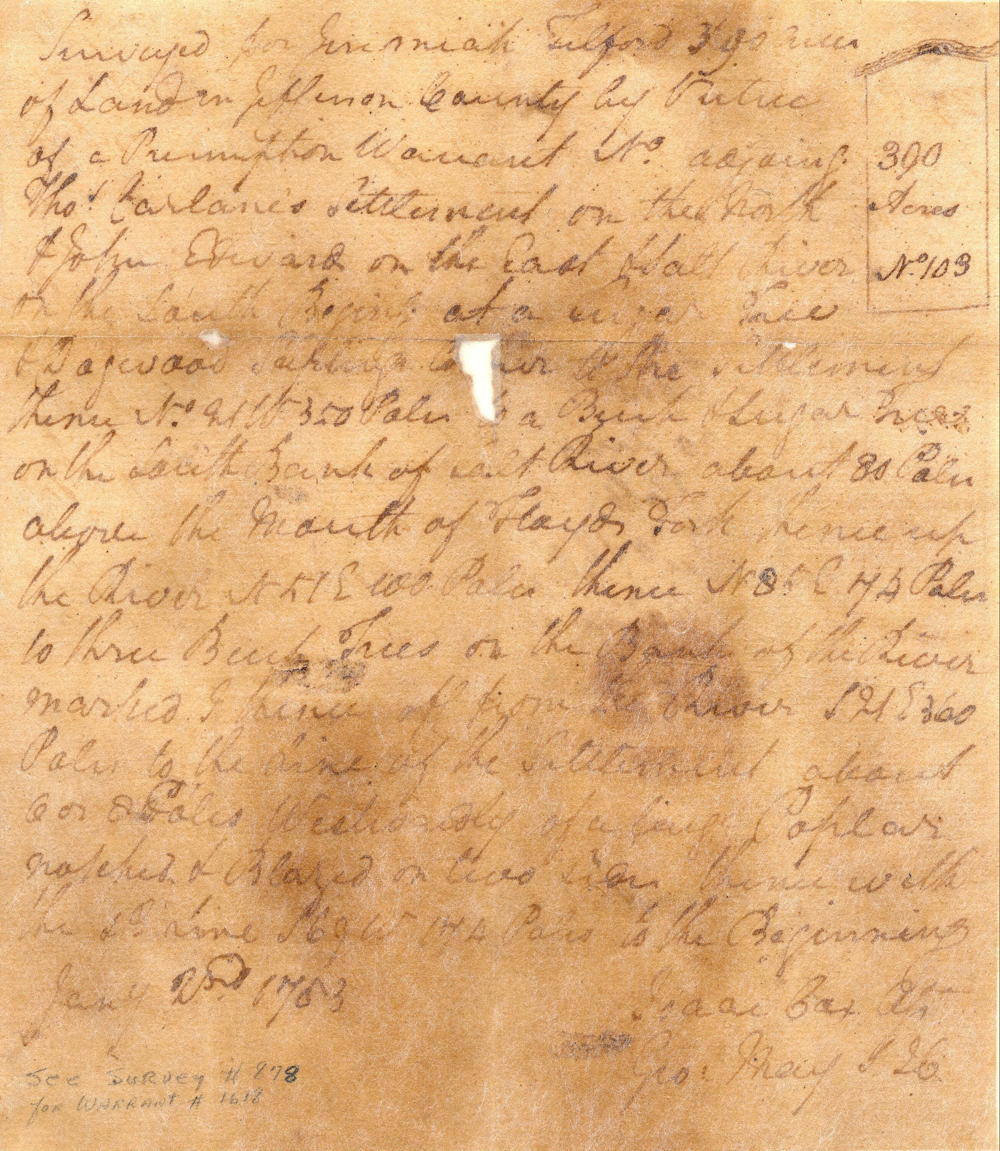 Surveyed for Jeremiah Tilford 390 acres
of Land in Jefferson County by Virtue
of a Premption Warrant No. adjoing
Thos. Carlane's Settlement on the North
& John Edward on the East & Salt River
on the South Begins at a sugar Tree
& Dogwood to the Settlement
thence No. 21 W 350 Poles to a Beech & Sugar Trees
on the South Bank of salt River about 80 Poles
above the Mouth of Floyds Fork thence up
the River N 51 E 100 Poles thence N 85 E 74 Poles
to three Beech Trees on the Bank of the River
marked I thence off from the River S 21 E 360
Poles to the Line of the Settlement about
6 or 8 Poles Westwardly of a large Poplar
notched & Blazed on two thence with
the sd. Line S 69 W 174 Poles to the Beginning
Jany 23rd 1783
Isaac Cox
Geo: May S
390
Acres
No. 103
SEE SURVEY # 878
FOR WARRANT # 1618